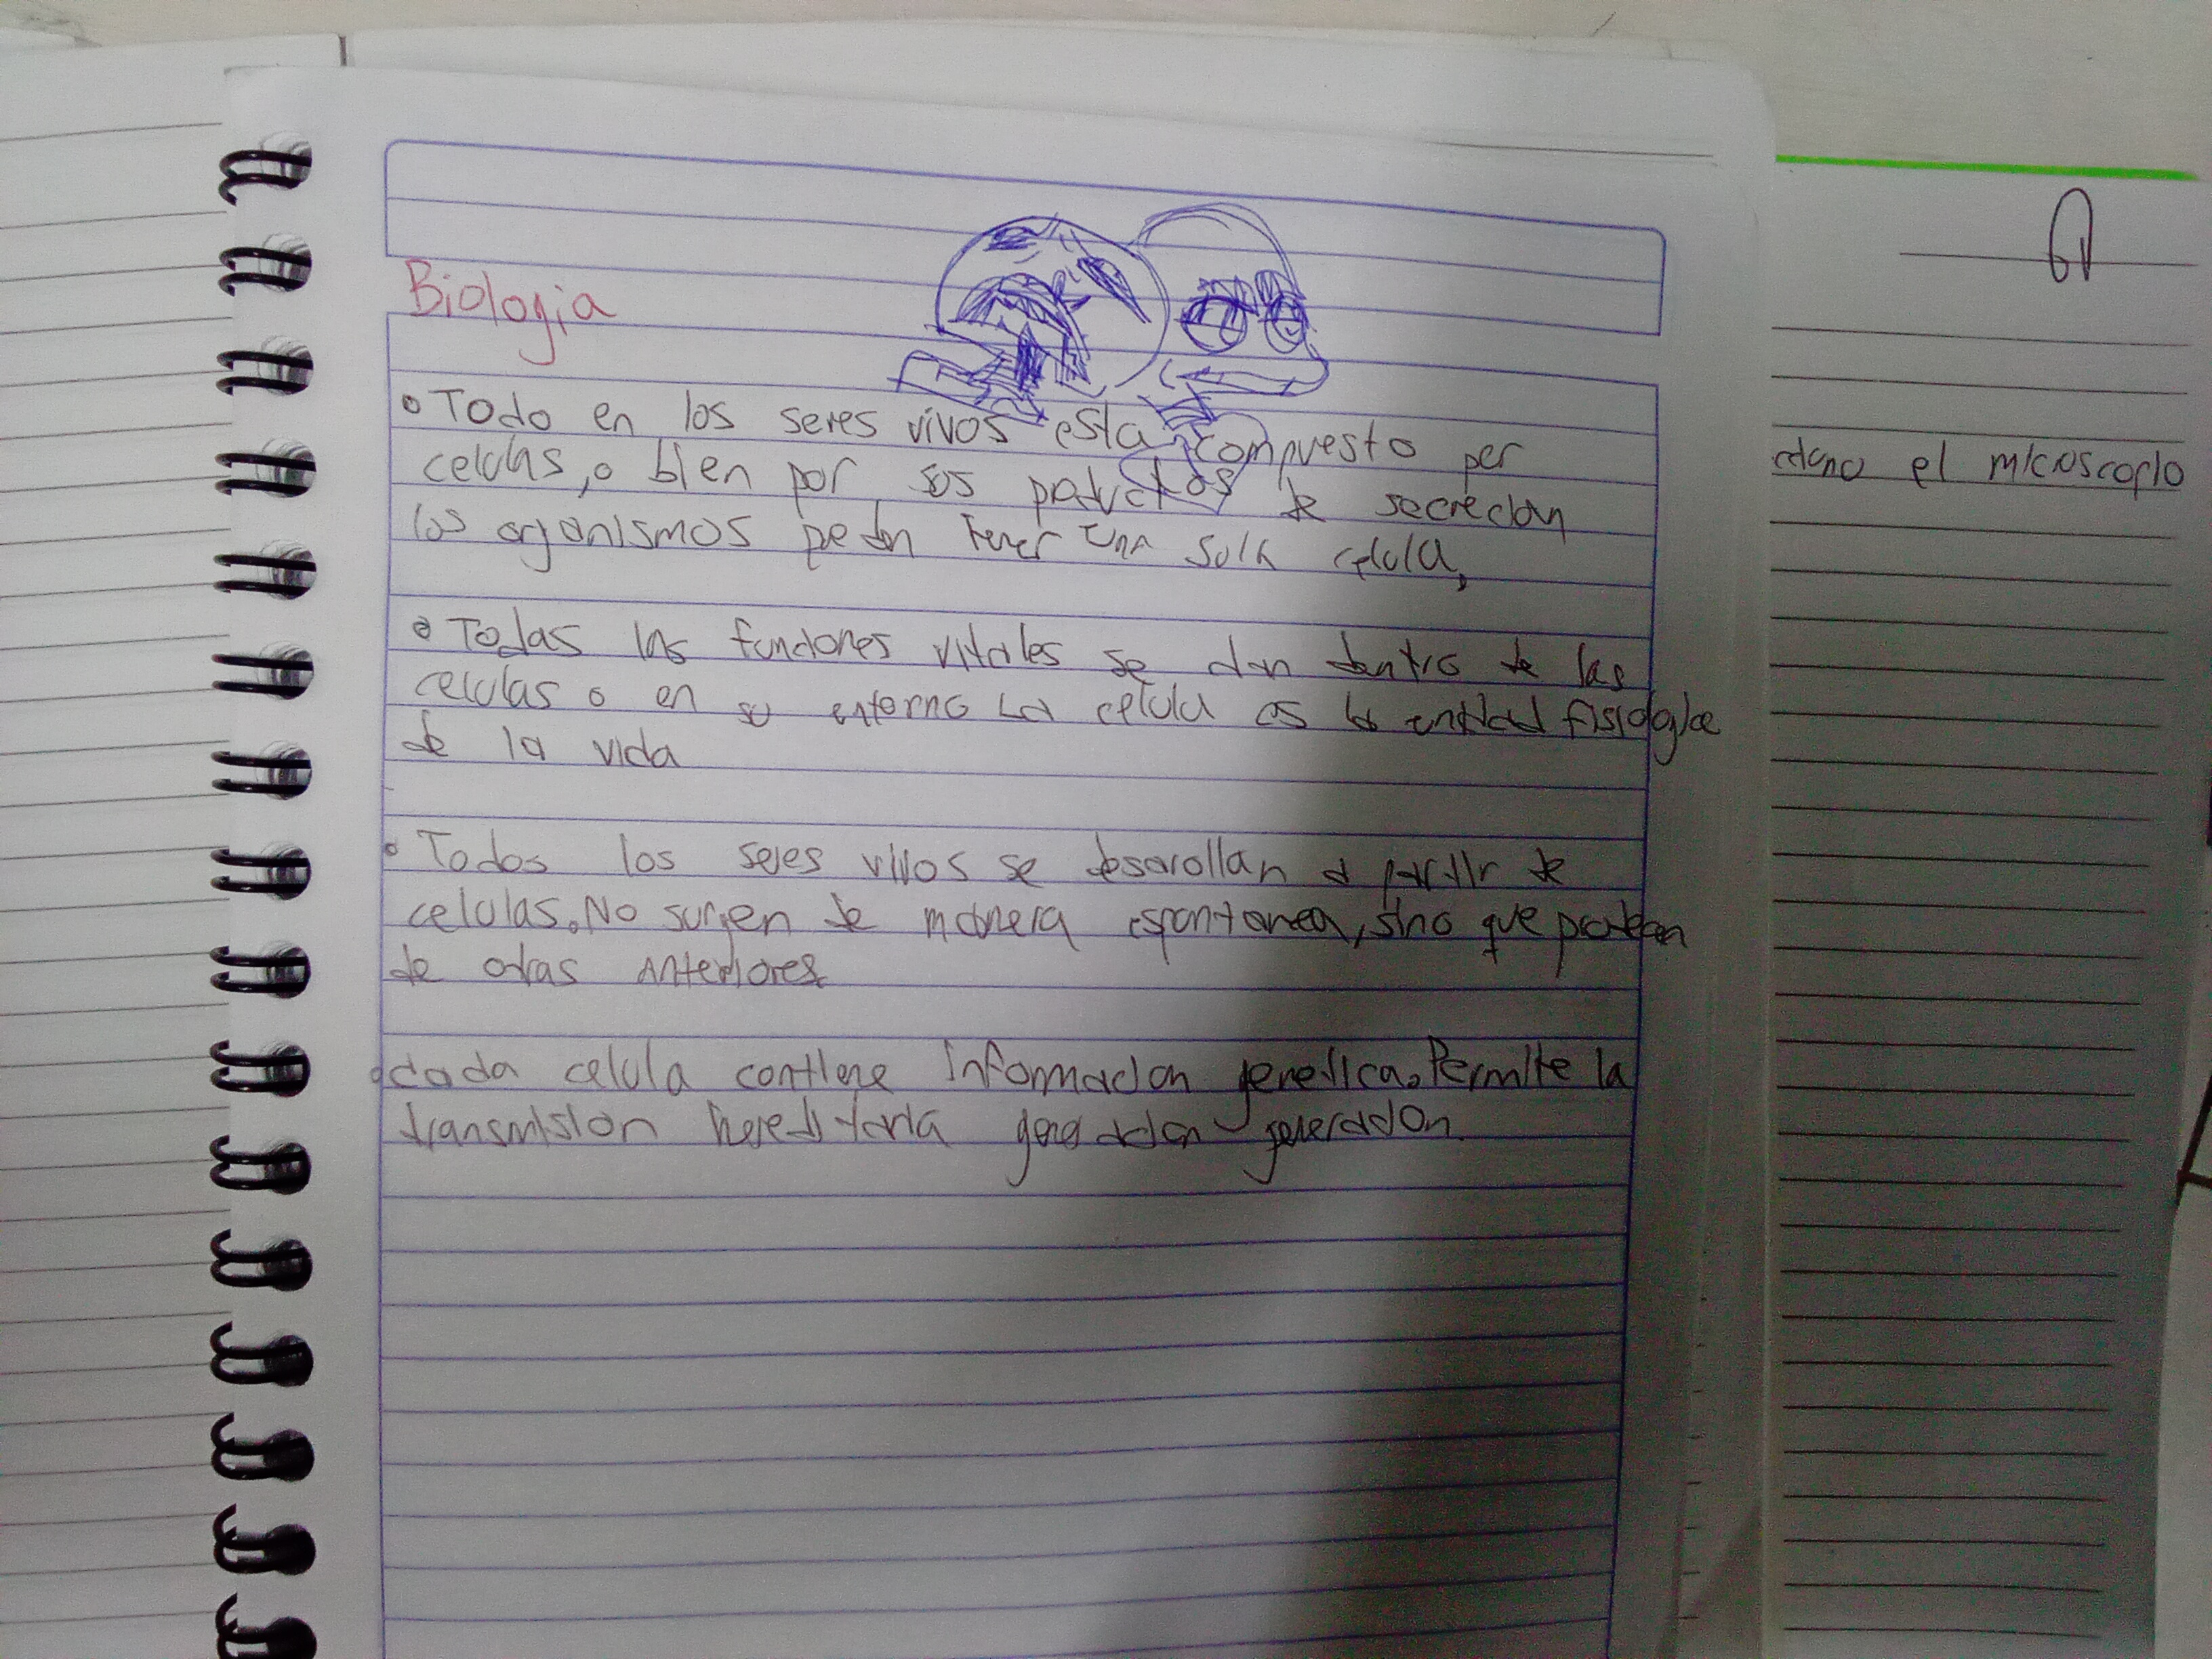 Biologia
• Todo en los seres vivos esta compuesto por
celulas, o bien por sus productos de secrecion
los organismos pueden tener una sola celula,
• Todas las funciones vitales se dan dentro de las
celulas o en su entorno La celula es la unidad fisiologica
de la vida
• Todos los seres vivos se desarollan a partir de
celulas. No surgen de manera espontanea, sino que
de otras anteriores
• cada celula contiene informacion genetica. Permite la
transmision hereditaria generacion generacion.
el microscopio